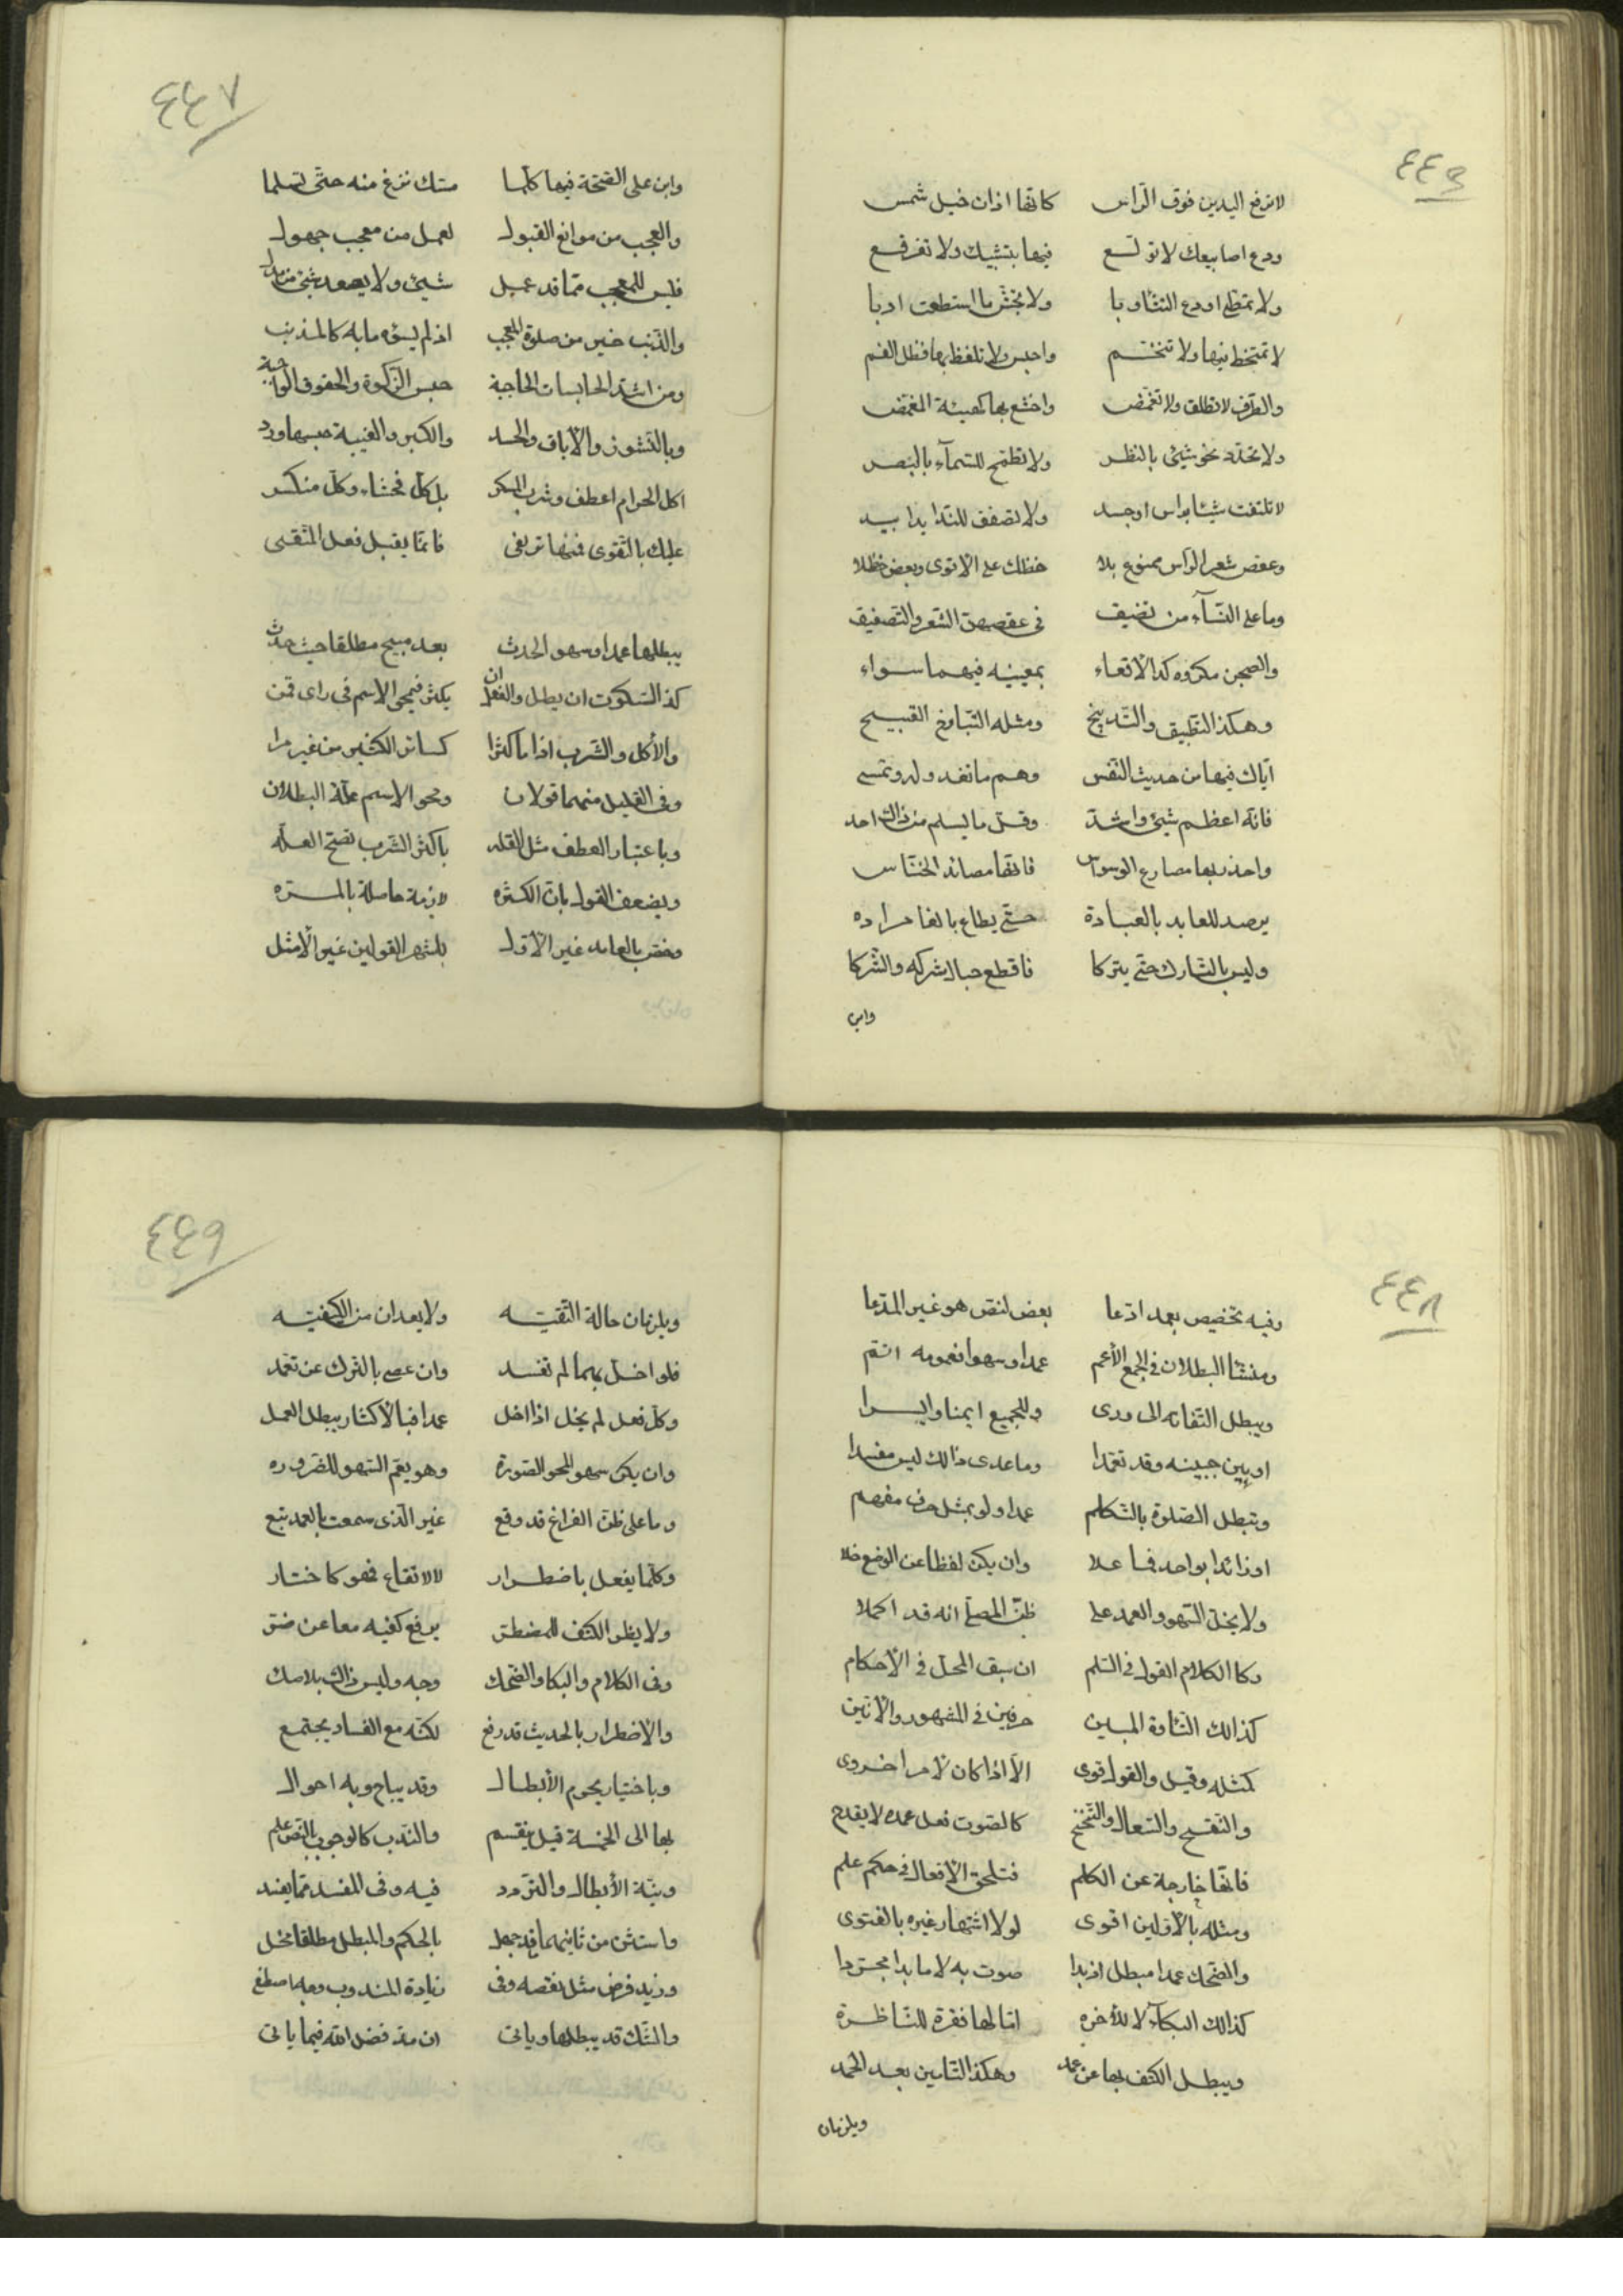 ٤٤٦
لا ترفع اليدين فوق الراس كانها اذان خيل شمس
ودع اصابيعك لا توسع فيها بتشبيك ولا تفرقع
ولا تمطى او دع التثاوبا ولا ما استطعت ادبا
لا تمتخط فيها ولا تنخم واحبس ولا تلفظ بها فظل الفم
والطرف لا تطلق ولا تغمض واخشع بها كهيئة المغمض
ولا تحدد نحو شيئ بالنظر ولا تطمح للسمآء بالبصر
لا تلتفت شيئا براس او جسد ولا تصفق للندا يدا بيد
وعقص شعر الراس ممنوع بلا حظلك على الاقوى وبعض حظلا
وما على النسآء من تضيق فى عقصهن الشعر والتصفيق
والصحن مكروه كذا الاقعاء بمعنييه فيهما سواء
وهكذا التطبيق والتدبيخ ومثله التبازخ القبيح
اياك فيها من حديث النفس وهم ما تغدو له وتمسى
فانه اعظم شيئ واشد وقل ما يسلم من ذاك احد
واحذر بها مصارع الوسواس فانها مصائد الخناس
يرصد للعابد بالعبادة حتى يطاع بالغا مراده
وليس بالتارك حتى يتركا فاقطع حبال شركه والشركا
وابن
٤٤٧
وابن على الفتحة فيها كلما مسك نزغ منه حتى تسلما
والعجب من موانع القبول لعمل من معجب جهول
فليس للمعجب مما قد عمل شيئ ولا يصعد شيئ منه
والذنب خير من صلوة المعجب اذ لم يسؤه ما به كالمذنب
ومن اشد الحابسات الحاجبة حبس الزكوة والحقوق الواجبة
وبالنشوز والاباق والحسد والكبر والغيبة حبسها ورد
اكل الحرام اعطف وشرب المسكر بل كل فحشاء وكل منكر
عليك بالتقوى فيها ترتقى فانما يقبل فعل المتقى
يبطلها عمدا وسهو الحدث بعد مبيح مطلقا حيث حدث
كذا السكوت ان يطل والفعل ان يكثر فيمحى الاسم فى راى قمن
والاكل والشرب اذا ما كثرا كسائر الكثير من غير مرا
وفى القليل منهما قولان ومحو الاسم علة البطلان
وباعتبار العطف مثل القله باكثر الشرب تصح العله
ويضعف القول بان الكثره لازمة حاصلة بالمره
وخص بالعامد غير الاول بلشهر القولين غير الامثل
٤٤٨
وفيه تخصيص بعمد ادعا بعض لنص هو غير المدعا
ومنشا البطلان فى الجمع الأعم عمدا وسهوا فعمومه اتم
ويبطل التفاته الى ورى وللجميع ايمنا وايسرا
او بين جبينه وقد تعمدا وما عدى ذالك ليس مفسدا
وتبطل الصلوة بالتكلم عمدا ولو بمثل حرف مفهم
او زائدا بواحد فما علا وان يكن لفظا عن الوضع خلا
ولا يخل السهو والعمد على ظن المصلى انه قد اكملا
وكا الكلام القول فى السلم ان سبق المحل فى الأحكام
كذالك التاوه المبين حرفين فى المشهور والانين
كمثله وقيل والقول قوى الا اذا كان لامر اخروى
والنفسيح والسعال والتنحنح كالصوت فعل عمده لا يقدح
فانها خارجة عن الكلم فتلحق الافعال فى حكم علم
ومثله بالاولين اقوى لولا اشتهار غيره بالفتوى
والضحك عمدا مبطل اذ بدا صوت به لا ما بدا مجردا
كذالك البكآء لا للأخره انا لها فقرة للناظرة
ويبطل الكتف بها عن عمد وهكذا التامين بعد الحمد
ويلزمان
٤٤٩
ويلزمان حالة التقيه ولا يعدان من الكيفيه
فلو اخل بهما لم تفسد وان عصى بالترك عن تعمد
وكل فعل لم يخل اذا اخل عمدا فبا الاكثار يبطل العمل
وان يكن سهوا لمحو الصورة وهو يعم السهو للضروره
وما على ظن الفراغ قد وقع غير الذى سمعت بالعمد تبع
وكلما يفعل باضطرار لا لاتقاء فهو كا ختار
ولا يظر الكتف للمضطر يرفع كفيه معا عن ضر
وفى الكلام والبكا والضحك وجه وليس ذاك بلا صك
والاضطرار بالحديث قد رفع لكنه مع الفساد يجتمع
وباختيار يحرم الأبطال وقد يباح وبه احوال
بها الى الخمسة قيل ينقسم والندب كالوجوب بالنص علم
ونية الأبطال والتردد فيه وفى المفسد مما يفسد
واستثن من ثانيهما قد جهل بالحكم والمبطل مطلقا مخل
وزيد فرض مثل نقصه وفى زيادة المندوب وجه
والشك قد يبطلها وياتى ان مد فضل الله فيما ياتى